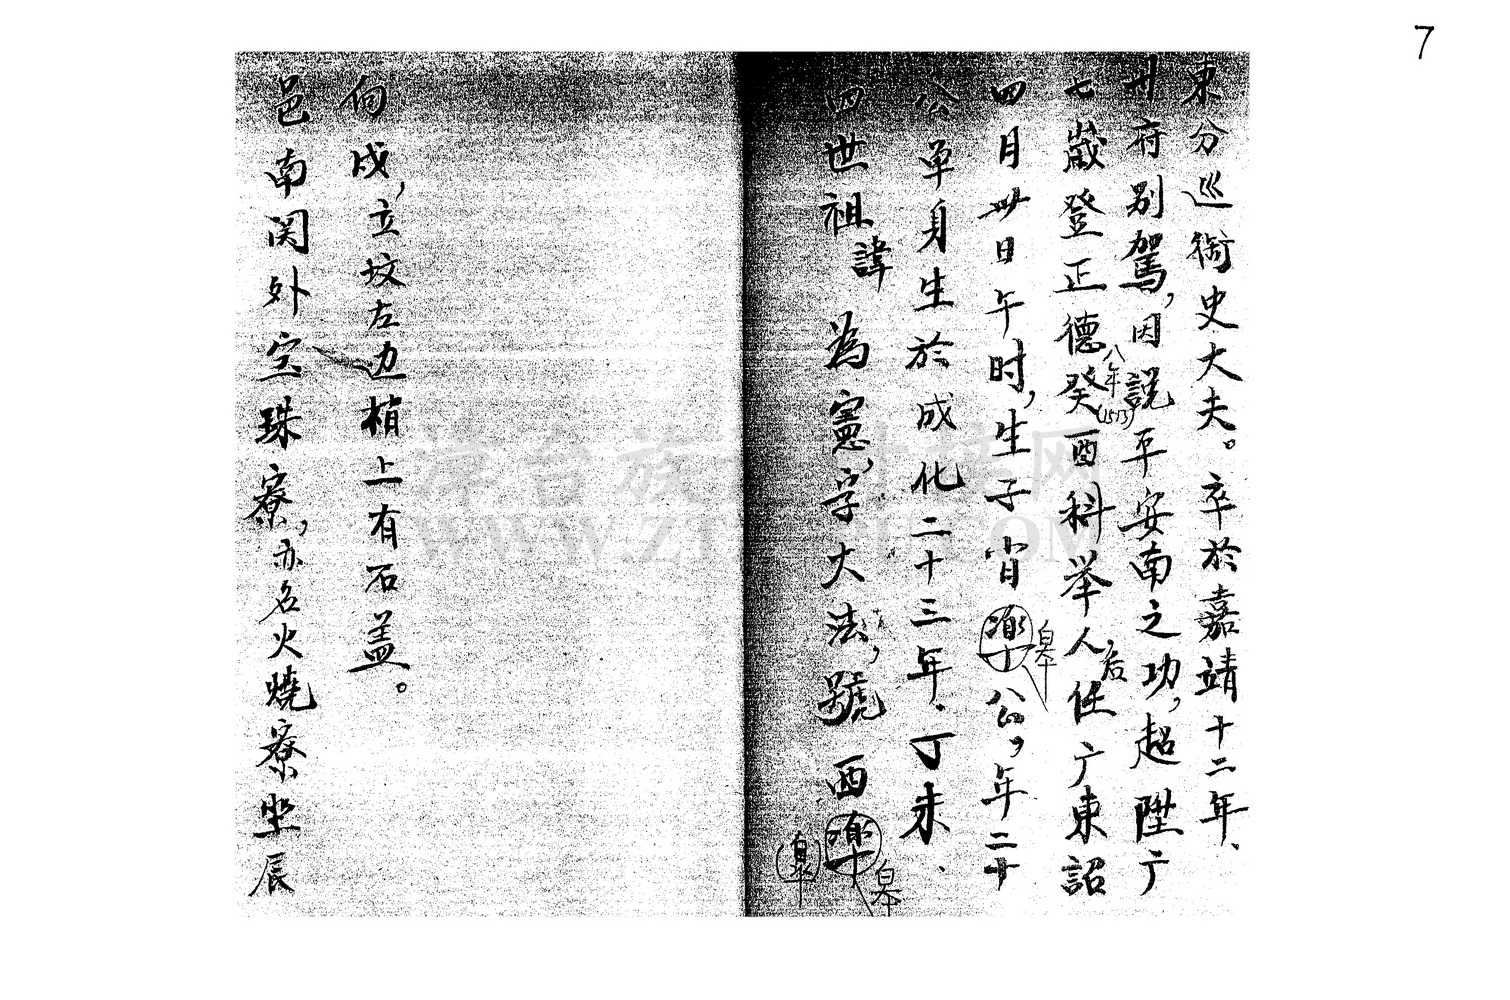 7
邑南関外宝珠寮,亦名火燒寮坐辰
向戌,立坟左边梢上有石盖。
四世祖諱為憲,字大法,號西滜
皋
皋
公单身生於成化二十三年、丁未、
四月廿日午时,生子肖滜公,年二十
皋
七歲登正德癸酉科举人,后任广東詔
八年(1513)
州府别駕,因說平安南之功,超陞广
東分巡御史大夫。卒於嘉靖十二年、
漳台族谱对接网
WWW.ZTZUPU.COM